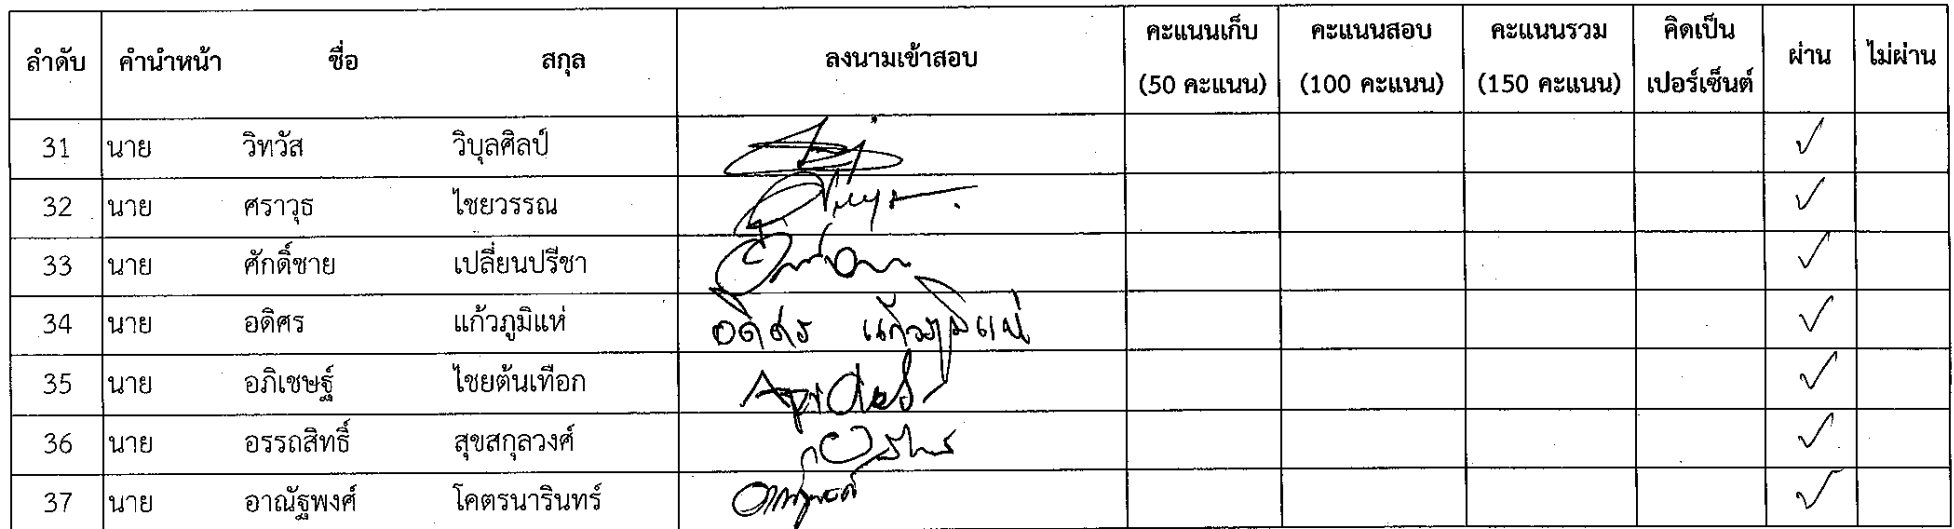 ลำดับ คำนำหน้า ชื่อ สกุล ลงนามเข้าสอบ คะแนนเก็บ (50 คะแนน) คะแนนสอบ (100 คะแนน) คะแนนรวม (150 คะแนน) คิดเป็น เปอร์เซ็นต์ ผ่าน ไม่ผ่าน
31 นาย วิทวัส วิบุลศิลป์ ✓
32 นาย ศราวุธ ไชยวรรณ ✓
33 นาย ศักดิ์ชาย เปลี่ยนปรีชา ✓
34 นาย อดิศร แก้วภูมิแห่ อดิศร แก้วภูมิแห่ ✓
35 นาย อภิเชษฐ์ ไชยต้นเทือก ✓
36 นาย อรรถสิทธิ์ สุขสกุลวงศ์ ✓
37 นาย อาณัฐพงศ์ โคตรนารินทร์ ✓